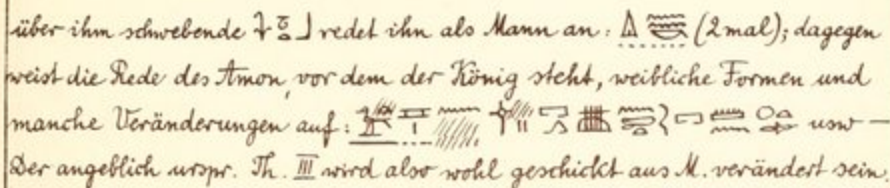 über ihm schwebende redet ihn als Mann an: (2 mal); dagegen
weist die Rede des Amon, vor dem der König steht, weibliche Formen und
manche Veränderungen auf: usw –
Der angeblich urspr. Th. III wird also wohl geschickt aus M. verändert sein.